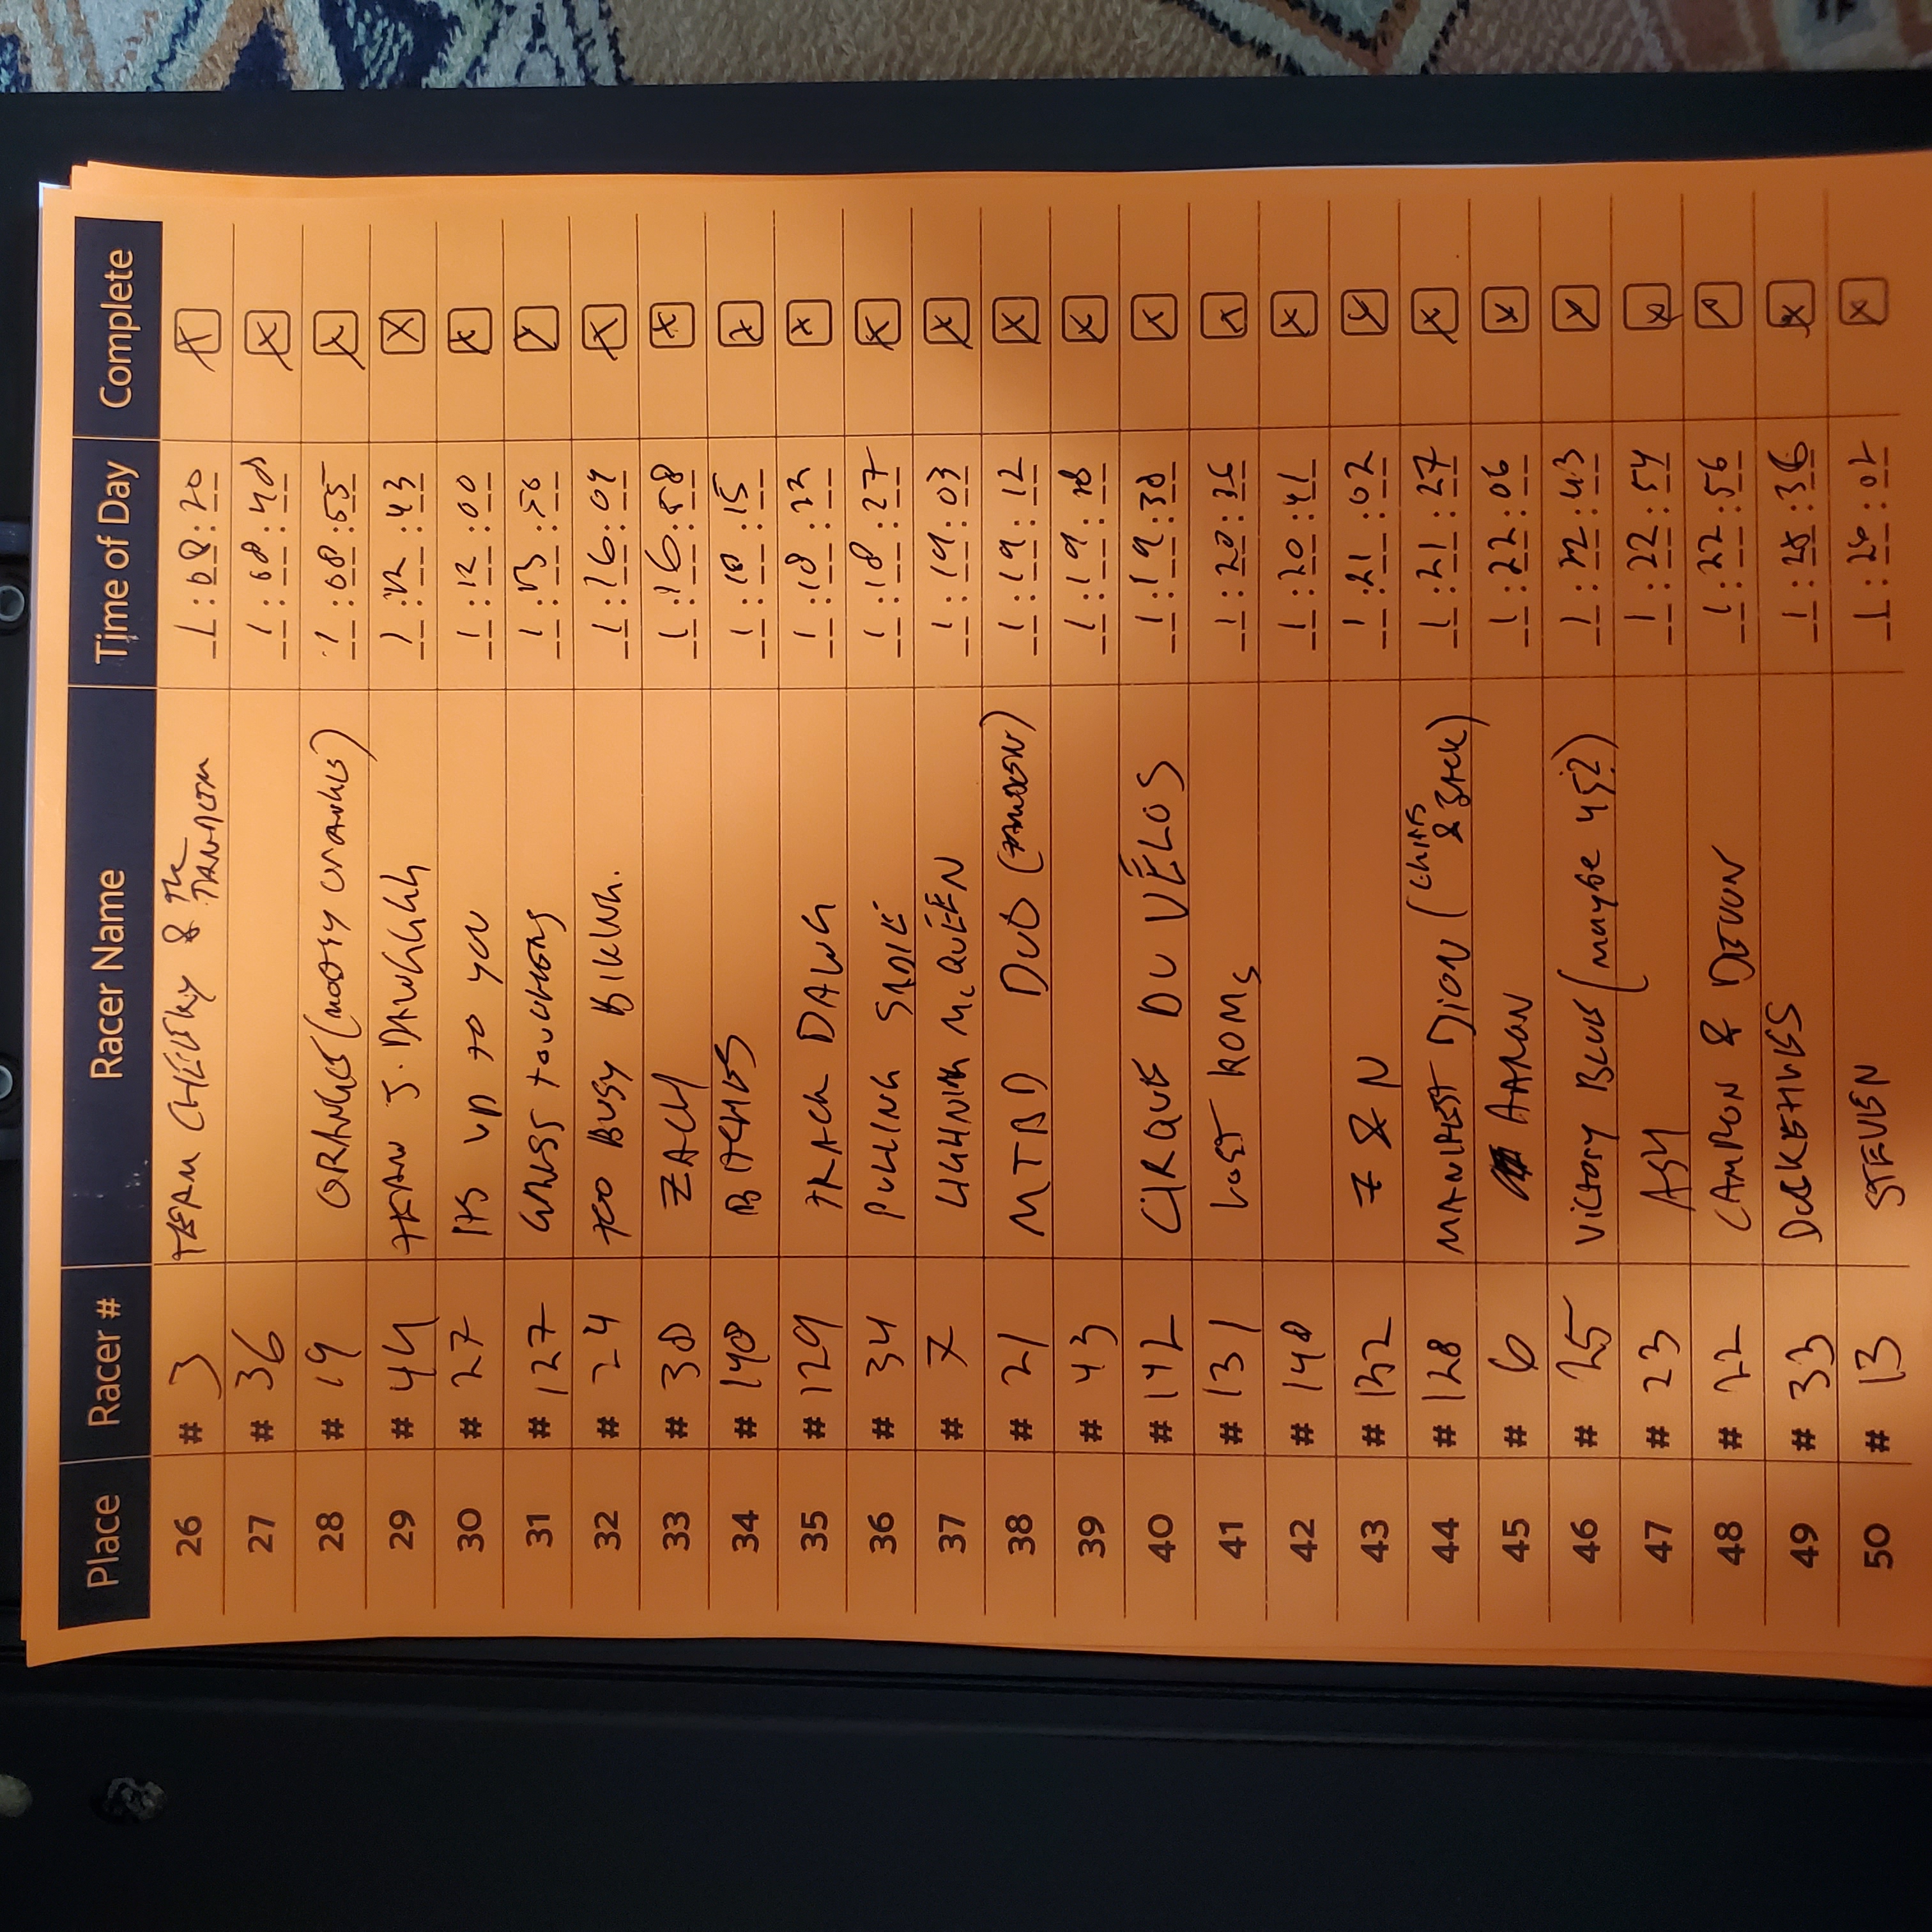 Place Racer # Racer Name Time of Day Complete
26 # 3 TEAM CHEEKY & THE TANDEM 1:08:20 X
27 # 36 1:08:48 X
28 # 19 ORANGE (MOSTLY ORANGE) 1:08:55 X
29 # 44 TEAM J. DAWGGGG 1: :43 X
30 # 27 ITS UP TO YOU 1:12:00 X
31 # 127 GRASS TOUCHERS 1:13:50 X
32 # 24 TOO BUSY BIKING. 1:16:04 X
33 # 38 ZACH 1:16:58 X
34 # 148 BITCHES 1:18:15 X
35 # 129 TRACK DAWG 1:18:22 X
36 # 34 PULLING SADIE 1:18:27 X
37 # 7 LIGHNING McQUEEN 1:19:03 X
38 # 21 MTBD DUO (TANDEM) 1:19:12 X
39 # 43 1:19: X
40 # 142 CIRQUE DU VÉLOS 1:19:38 X
41 # 131 LOST KOMS 1:20:36 X
42 # 148 1:20:41 X
43 # 132 Z & N 1:21:02 X
44 # 128 MANIFEST DION (CHRIS & ZACK) 1:21:27 X
45 # 6 AARON 1:22:06 X
46 # 25 VICTORY BLUE (maybe 45?) 1:22:43 X
47 # 23 ASH 1:22:54 X
48 # 22 CAMRON & DEVON 1:22:56 X
49 # 33 1: :36 X
50 # 13 STEVEN 1:26:02 X